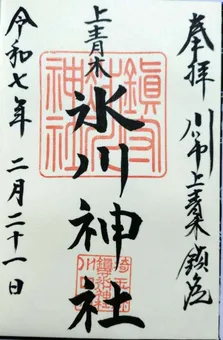 奉拝 川口市上青木鎮座
上青木
氷川神社
鎮守
神社
令和七年 二月二十一日